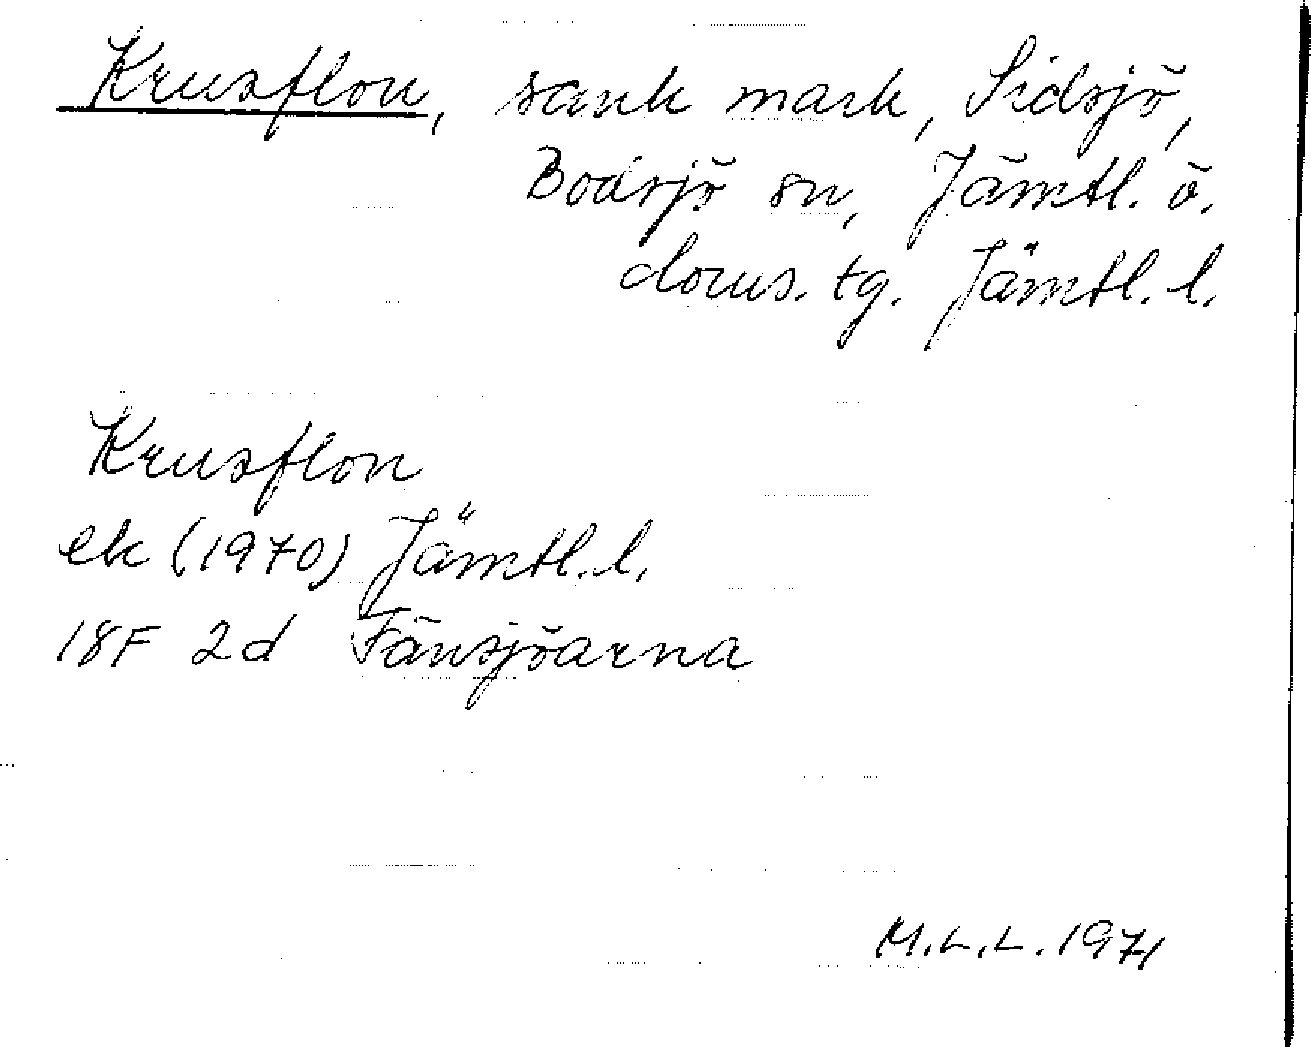 Krusflon, sank mark, Sidsjö,
Bodsjö sn, Jämtl. ö.
doms. tg. Jämtl. l.
Krusflon
ek (1970) Jämtl. l.
18F 2d Fänsjöarna
M.L.L. 1971